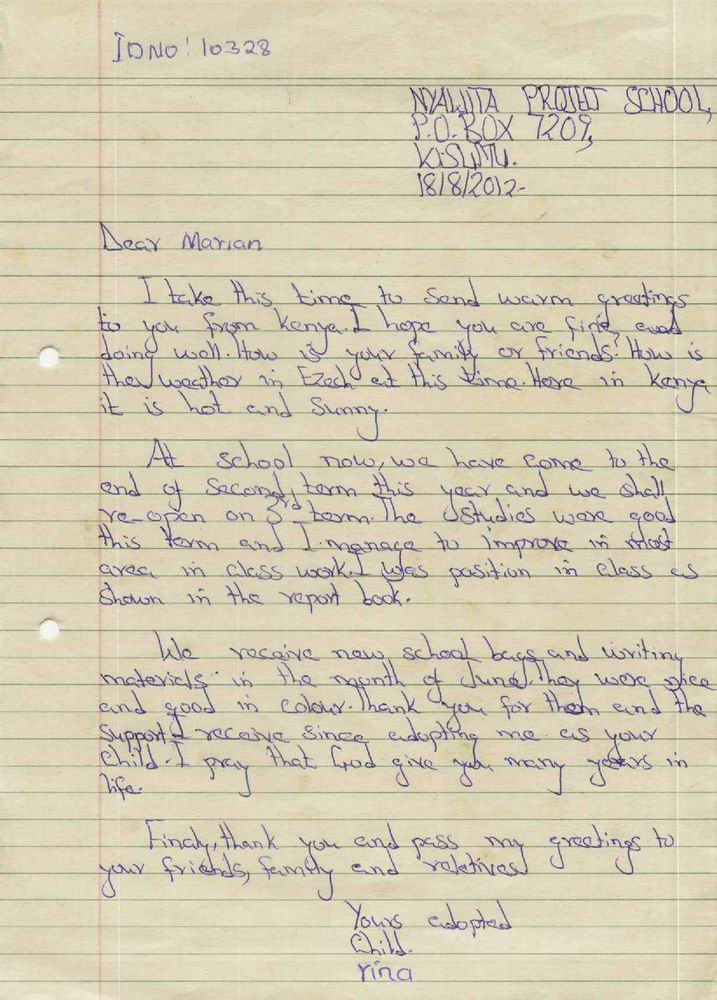 IDNO: 10328
NYAWITA PROJECT SCHOOL,
P.O. BOX 7209,
KISUMU.
18/8/2012-
Dear Marian
I take this time to send warm greetings
to you from Kenya. I hope you are fine, and
doing well. How is your family or friends. How is
the weather in Ezech at this time. Here in Kenya
it is hot and Sunny.
At school now, we have come to the
end of second term this year and we shall
re-open on 3rd term. The studies were good
this term and I manage to improve in most
area in class work. I was position in class as
shown in the report book.
We receive new school bags and writing
materials in the month of June. they were nice
and good in colour. thank you for them and the
support I receive since adopting me as your
child. I pray that God give you many years in
life.
Finaly, thank you and pass my greetings to
your friends, family and relatives
Yours adopted
Child.
rina